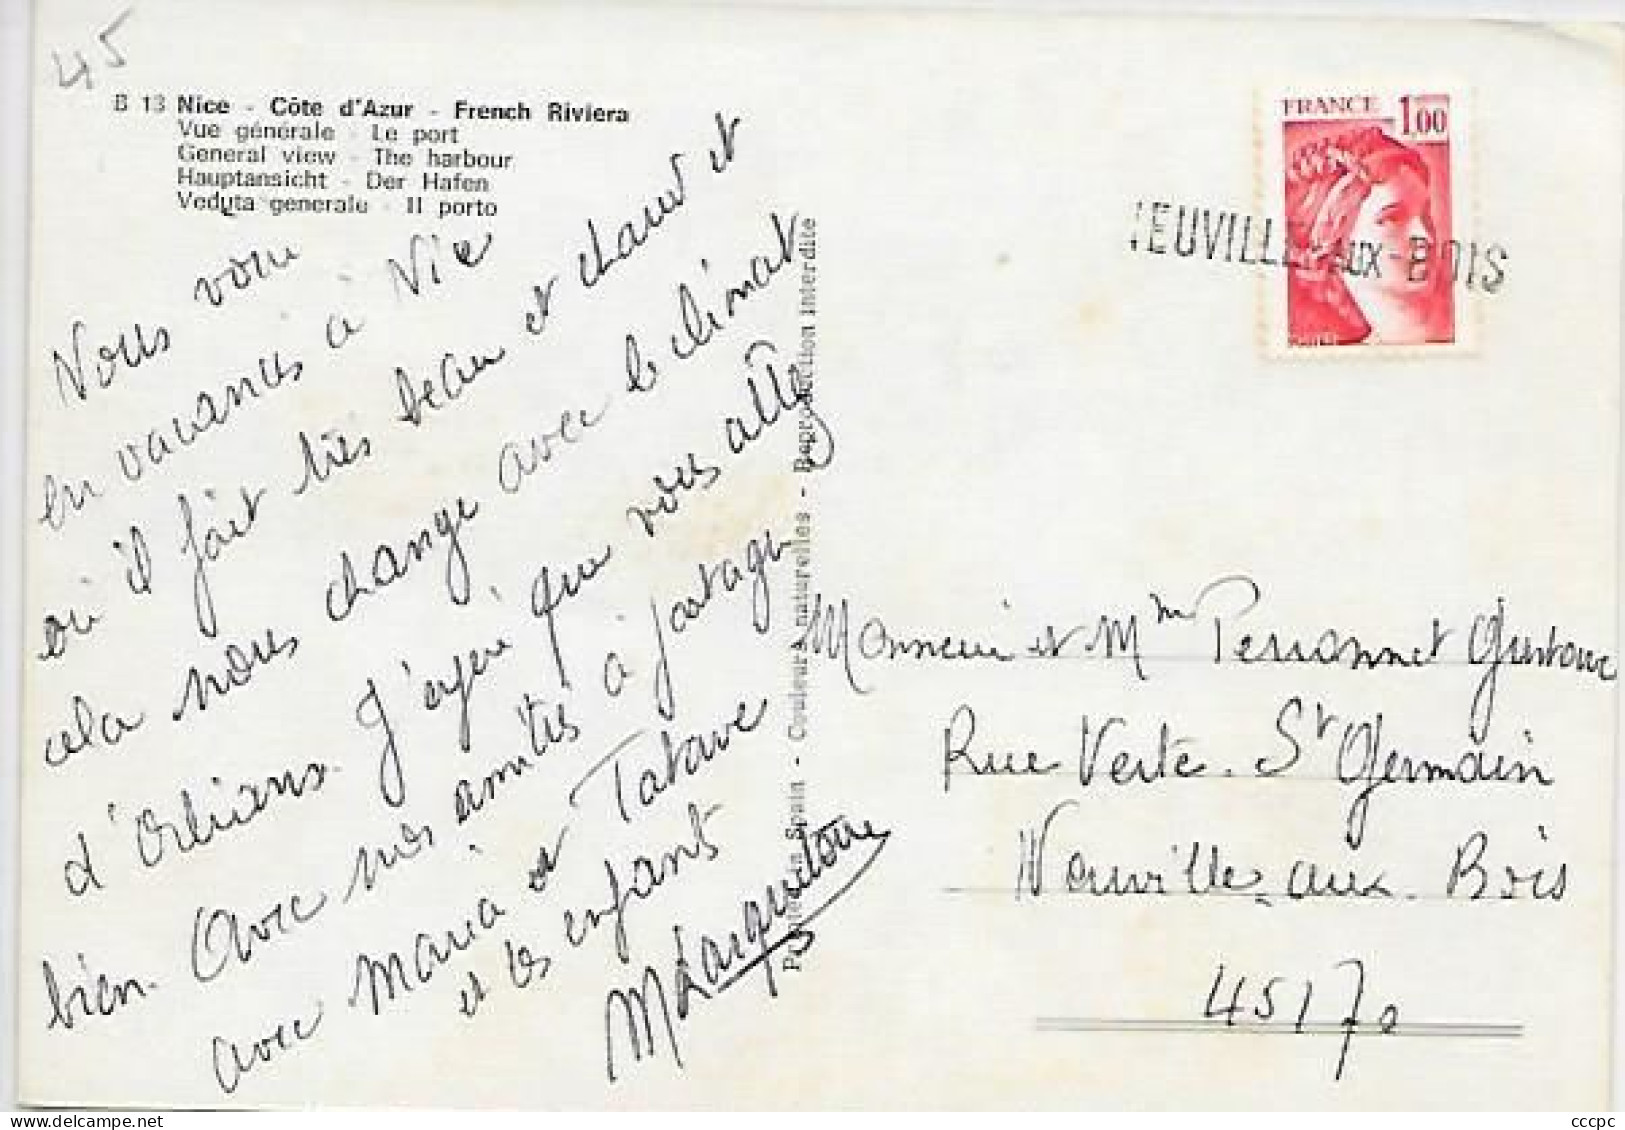 45
B 13 Nice - Côte d'Azur - French Riviera
Vue générale - Le port
General view - The harbour
Hauptansicht - Der Hafen
Veduta generale - Il porto
Nous voici
en vacances à Nice
où il fait très beau et chaud et
cela nous change avec le climat
d'Orléans. J'espère que vous allez
bien. Avec nos amitiés à partager
avec Maria et Tatave
et les enfants
Printed in Spain - Couleurs naturelles - Reproduction interdite
FRANCE 1,00
NEUVILLE-AUX-BOIS
Monsieur et Mme Perronnet Gustave
Rue Verte. St Germain
Neuville-aux-Bois
45170
cccpc